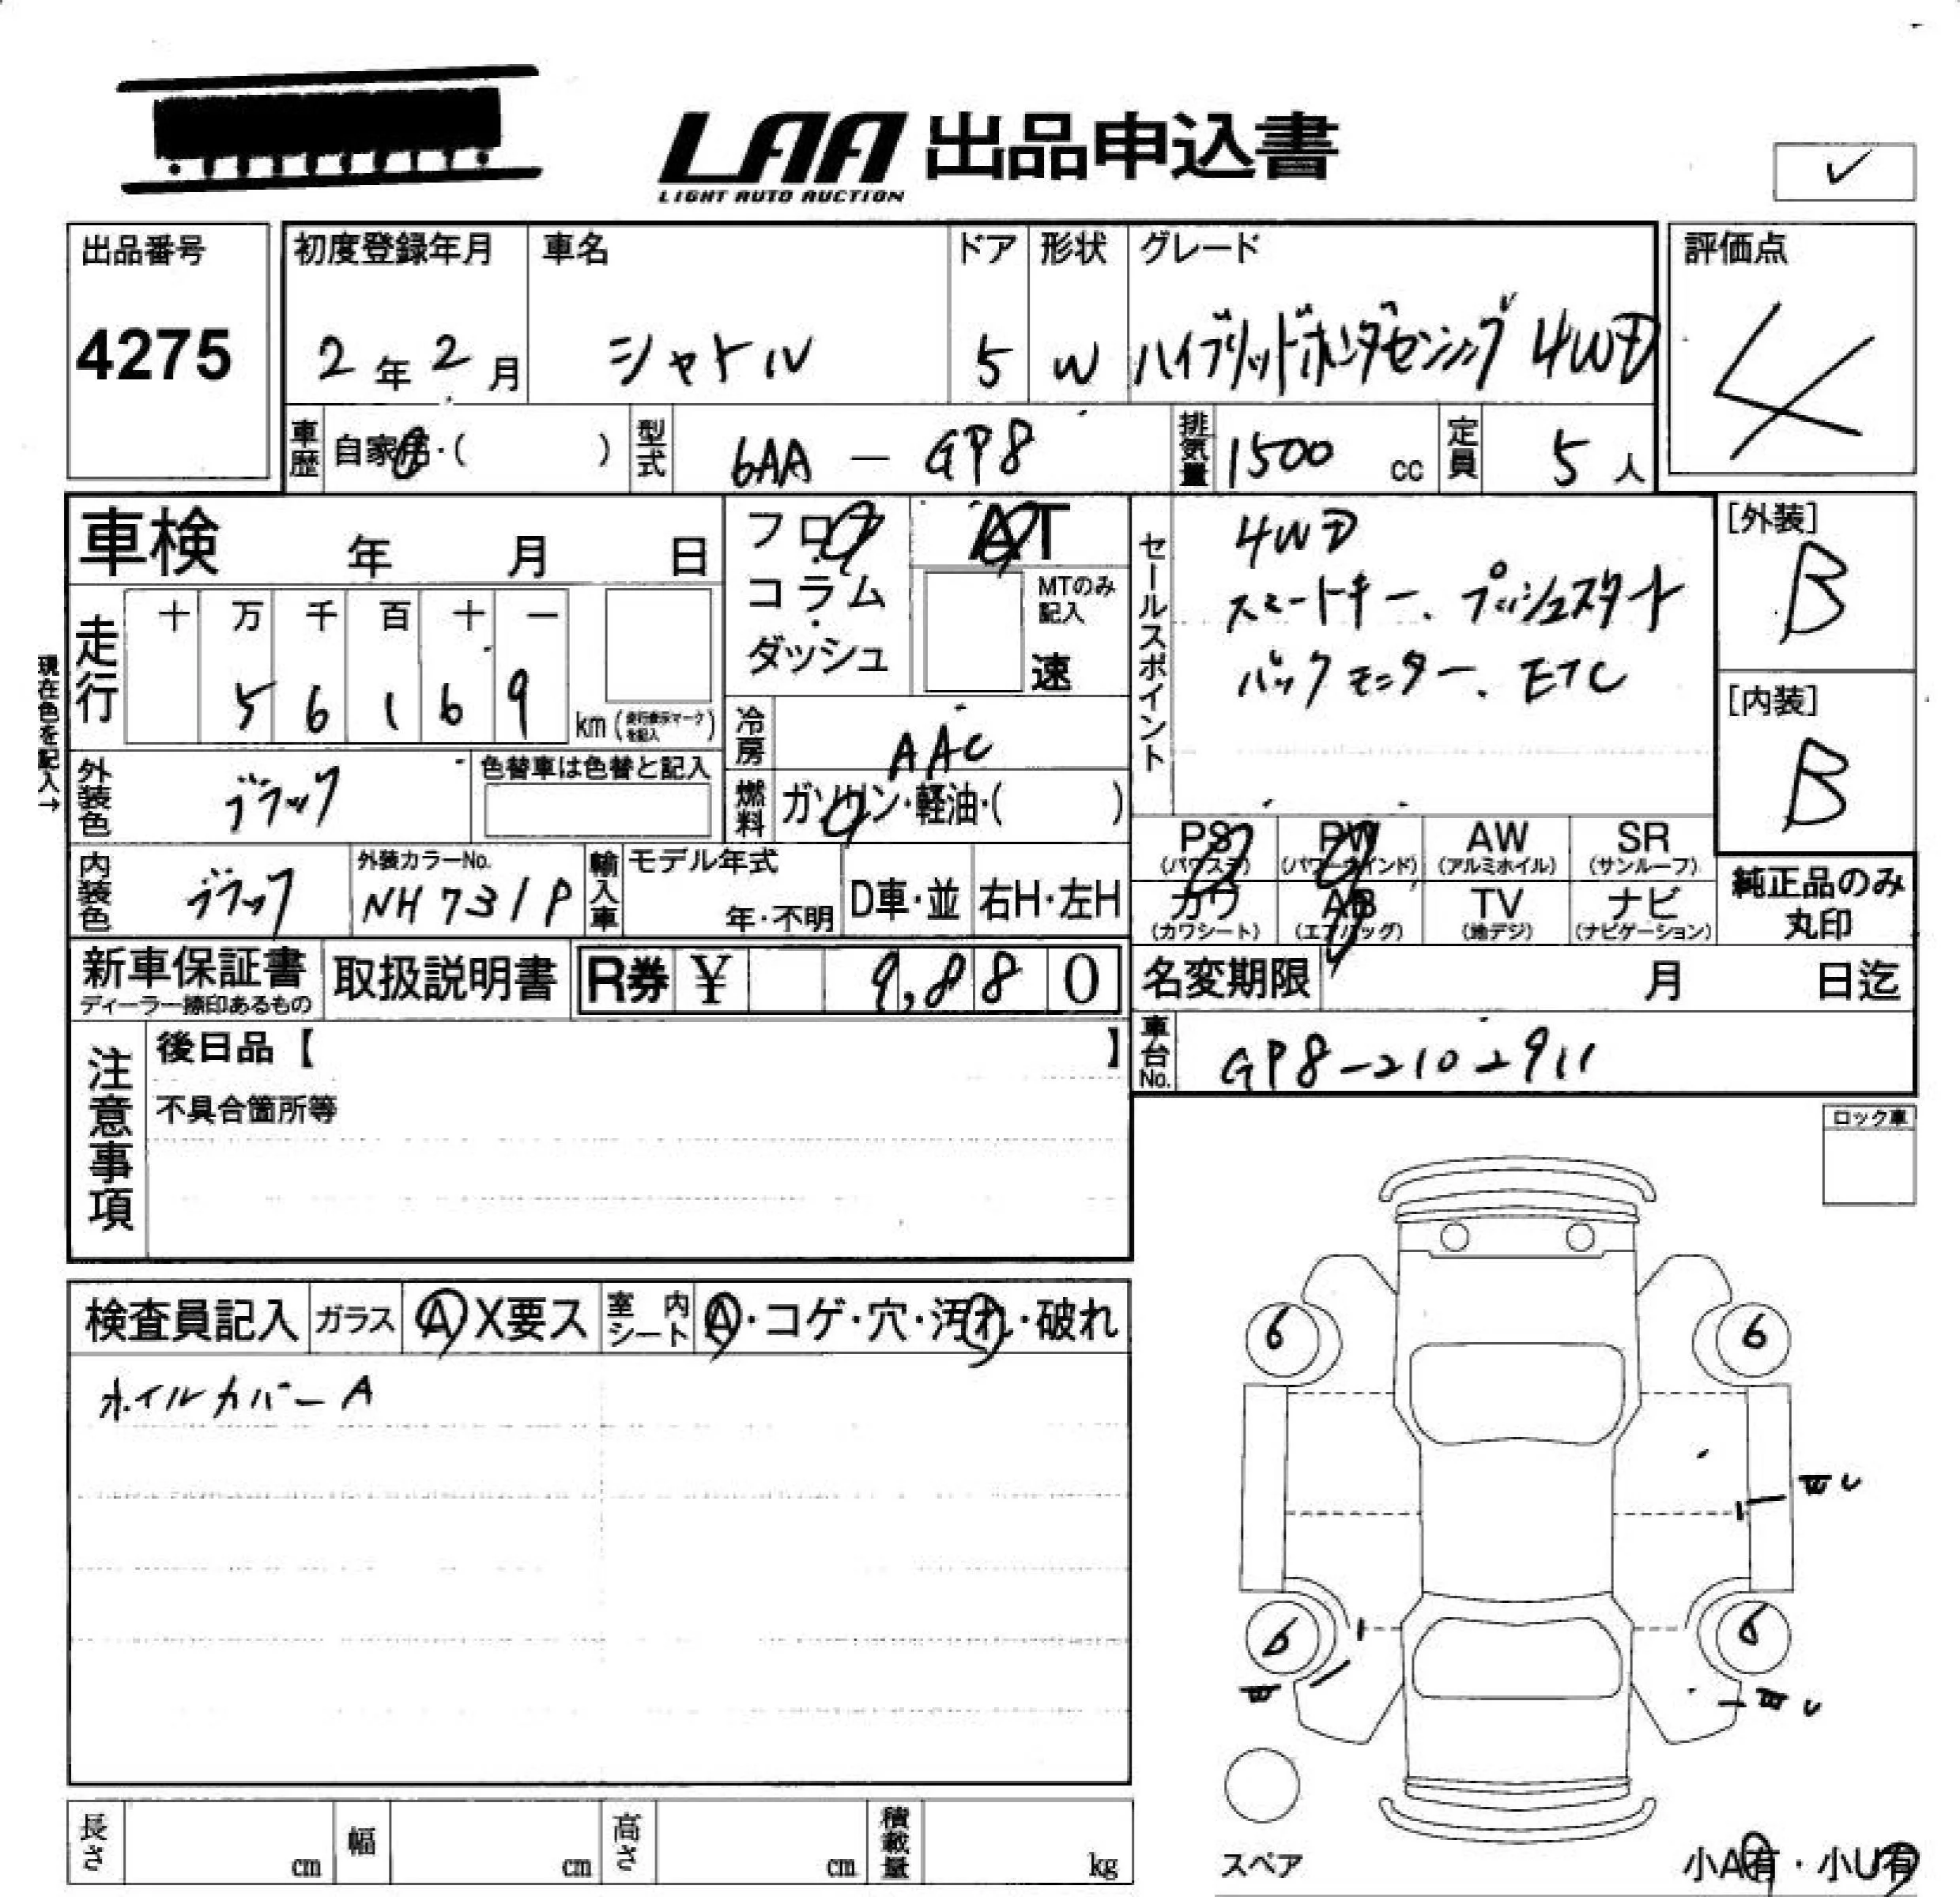 LAA 出品申込書
LIGHT AUTO AUCTION
✓
出品番号
4275
初度登録年月
2年2月
車名
シャトル
ドア
5
形状
W
グレード
ハイブリッドホンダセンシング 4WD
評価点
4
車歴
自家用・( )
型式
6AA - GP8
排気量
1500 cc
定員
5人
車検 年 月 日
フロア
・
コラム
・
ダッシュ
AT
MTのみ
記入
速
セールスポイント
4WD
スマートキー、プッシュスタート
バックモニター、ETC
[外装]
B
[内装]
B
現在色を記入→
走行
十 万 千 百 十 一
5 6 1 6 9
km (走行表示マークを記入)
冷房
AAC
外装色
ブラック
色替車は色替と記入
燃料
ガソリン・軽油・( )
PS
(パワステ)
PW
(パワーウインド)
AW
(アルミホイル)
SR
(サンルーフ)
カワ
(カワシート)
AB
(エアバッグ)
TV
(地デジ)
ナビ
(ナビゲーション)
純正品のみ
丸印
内装色
ブラック
外装カラーNo.
NH731P
輸入車
モデル年式
年・不明
D車・並
右H・左H
新車保証書
ディーラー捺印あるもの
取扱説明書
R券 ¥ 9,880
名変期限 月 日迄
車台No.
GP8-2102911
注意事項
後日品【 】
不具合箇所等
ロック車
検査員記入
ガラス
A X要ス
室内シート
A・コゲ・穴・汚れ・破れ
ホイルカバーA
6
6
6
6
スペア
小A有・小U有
長さ
cm
幅
cm
高さ
cm
積載量
kg